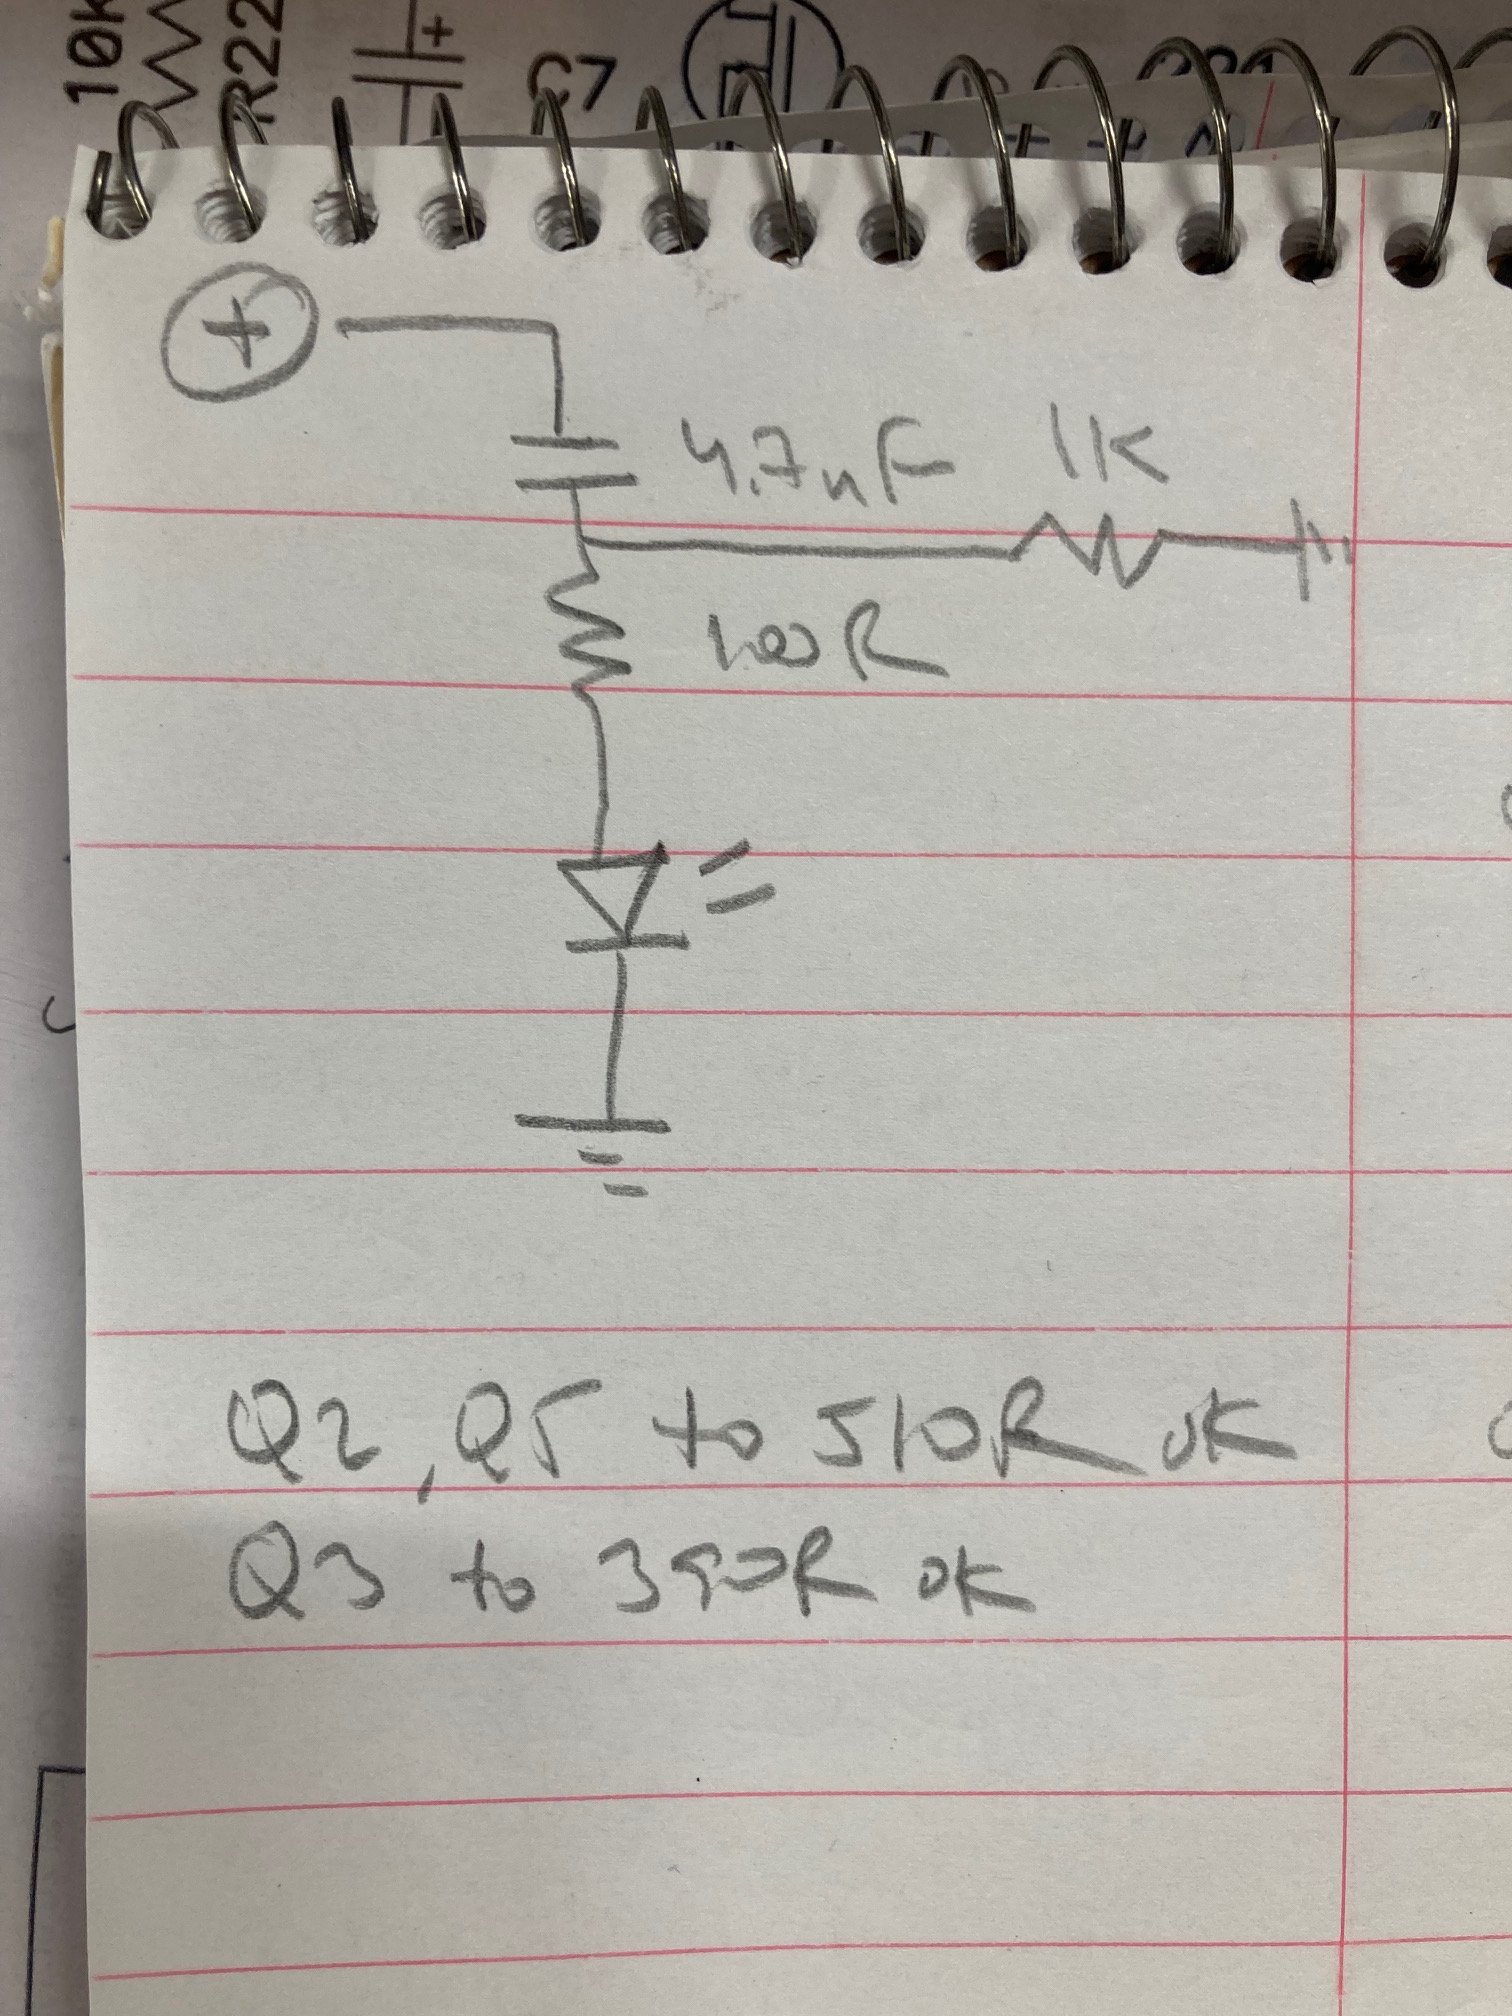 10K
R22
+
C7
+
4.7nF 1K
100R
Q2, Q5 to 510R OK
Q3 to 390R OK